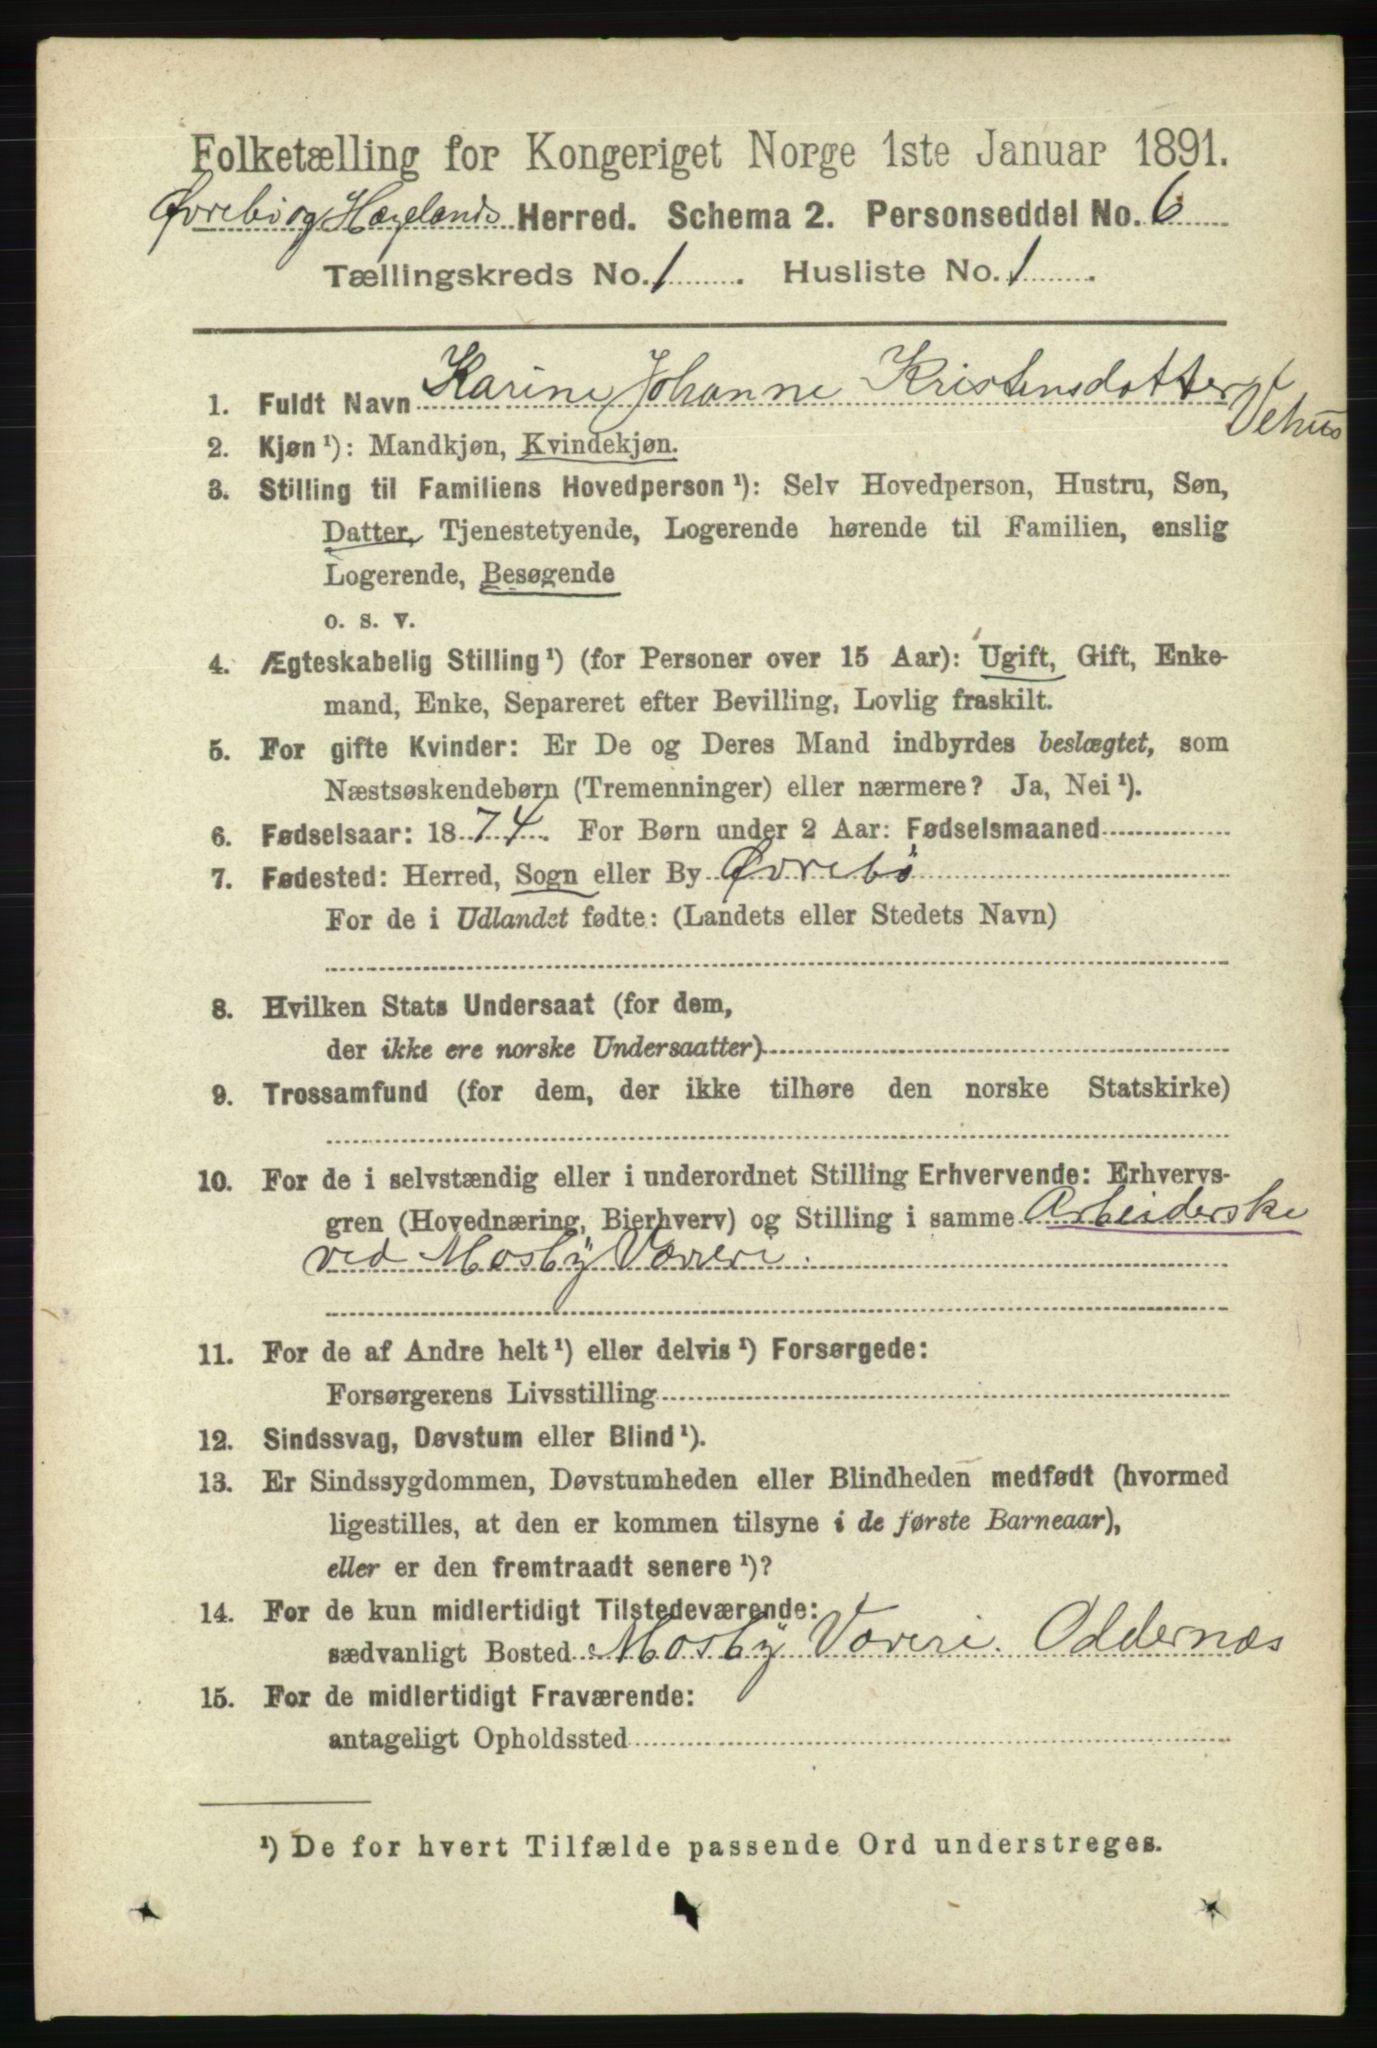 Folketælling for Kongeriget Norge 1ste Januar 1891.
Øvrebø og Hægelands Herred. Schema 2. Personseddel No. 6
Tællingskreds No. 1. Husliste No. 1.
1. Fuldt Navn Karine Johanne Kristensdatter
Vehus
2. Kjøn ¹): Mandkjøn, Kvindekjøn.
3. Stilling til Familiens Hovedperson ¹): Selv Hovedperson, Hustru, Søn,
Datter, Tjenestetyende, Logerende hørende til Familien, enslig
Logerende, Besøgende
o. s. v.
4. Ægteskabelig Stilling ¹) (for Personer over 15 Aar): Ugift, Gift, Enke-
mand, Enke, Separeret efter Bevilling, Lovlig fraskilt.
5. For gifte Kvinder: Er De og Deres Mand indbyrdes beslægtet, som
Næstsøskendebørn (Tremenninger) eller nærmere? Ja, Nei ¹).
6. Fødselsaar: 1874. For Børn under 2 Aar: Fødselsmaaned
7. Fødested: Herred, Sogn eller By Øvrebö
For de i Udlandet fødte: (Landets eller Stedets Navn)
8. Hvilken Stats Undersaat (for dem,
der ikke ere norske Undersaatter)
9. Trossamfund (for dem, der ikke tilhøre den norske Statskirke)
10. For de i selvstændig eller i underordnet Stilling Erhvervende: Erhvervs-
gren (Hovednæring, Bierhverv) og Stilling i samme Arbeiderske
ved Mosbÿ Væveri.
11. For de af Andre helt ¹) eller delvis ¹) Forsørgede:
Forsørgerens Livsstilling
12. Sindssvag, Døvstum eller Blind ¹).
13. Er Sindssygdommen, Døvstumheden eller Blindheden medfødt (hvormed
ligestilles, at den er kommen tilsyne i de første Barneaar),
eller er den fremtraadt senere ¹)?
14. For de kun midlertidigt Tilstedeværende:
sædvanligt Bosted Mosbÿ Væveri. Oddernæs
15. For de midlertidigt Fraværende:
antageligt Opholdssted
¹) De for hvert Tilfælde passende Ord understreges.